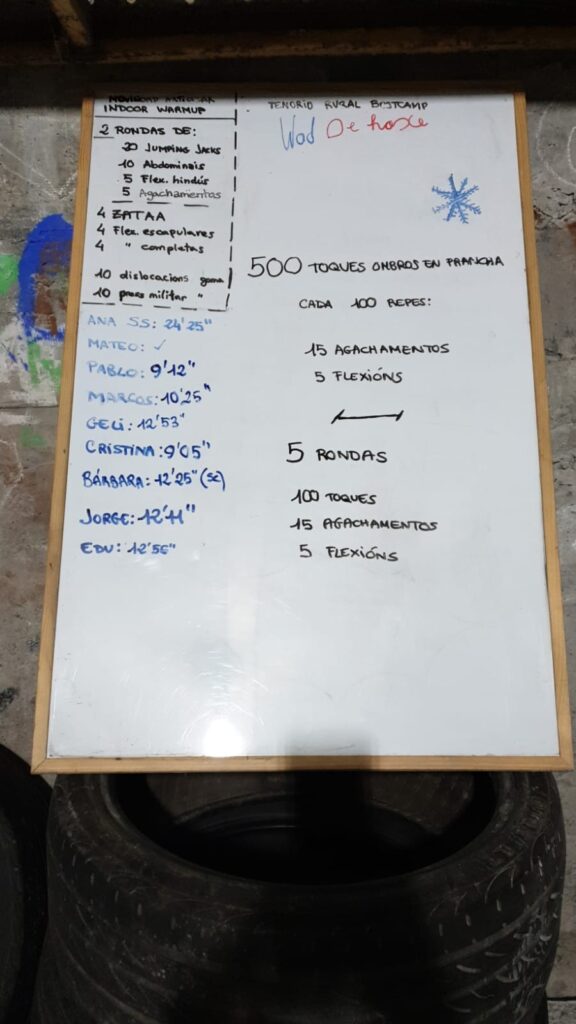 INDOOR WARMUP
2 RONDAS DE:
20 JUMPING JACKS
10 Abdominais
5 Flex. hindús
5 Agachamientos
4 ZATAA
4 Flex escapulares
4 " completas
10 dislocacions goma
10 press militar "
ANA SS: 24'25"
MATEO: ✓
PABLO: 9'12"
MARCOS: 10'25"
GELI: 12'53"
CRISTINA: 9'05"
BÁRBARA: 12'25" (SC)
JORGE: 12'11"
EDU: 12'56"
TENORIO RURAL BOOTCAMP
Wod De hoxe
500 TOQUES OMBROS EN PRANCHA
CADA 100 REPES:
15 AGACHAMENTOS
5 FLEXIÓNS
5 RONDAS
100 TOQUES
15 AGACHAMENTOS
5 FLEXIÓNS